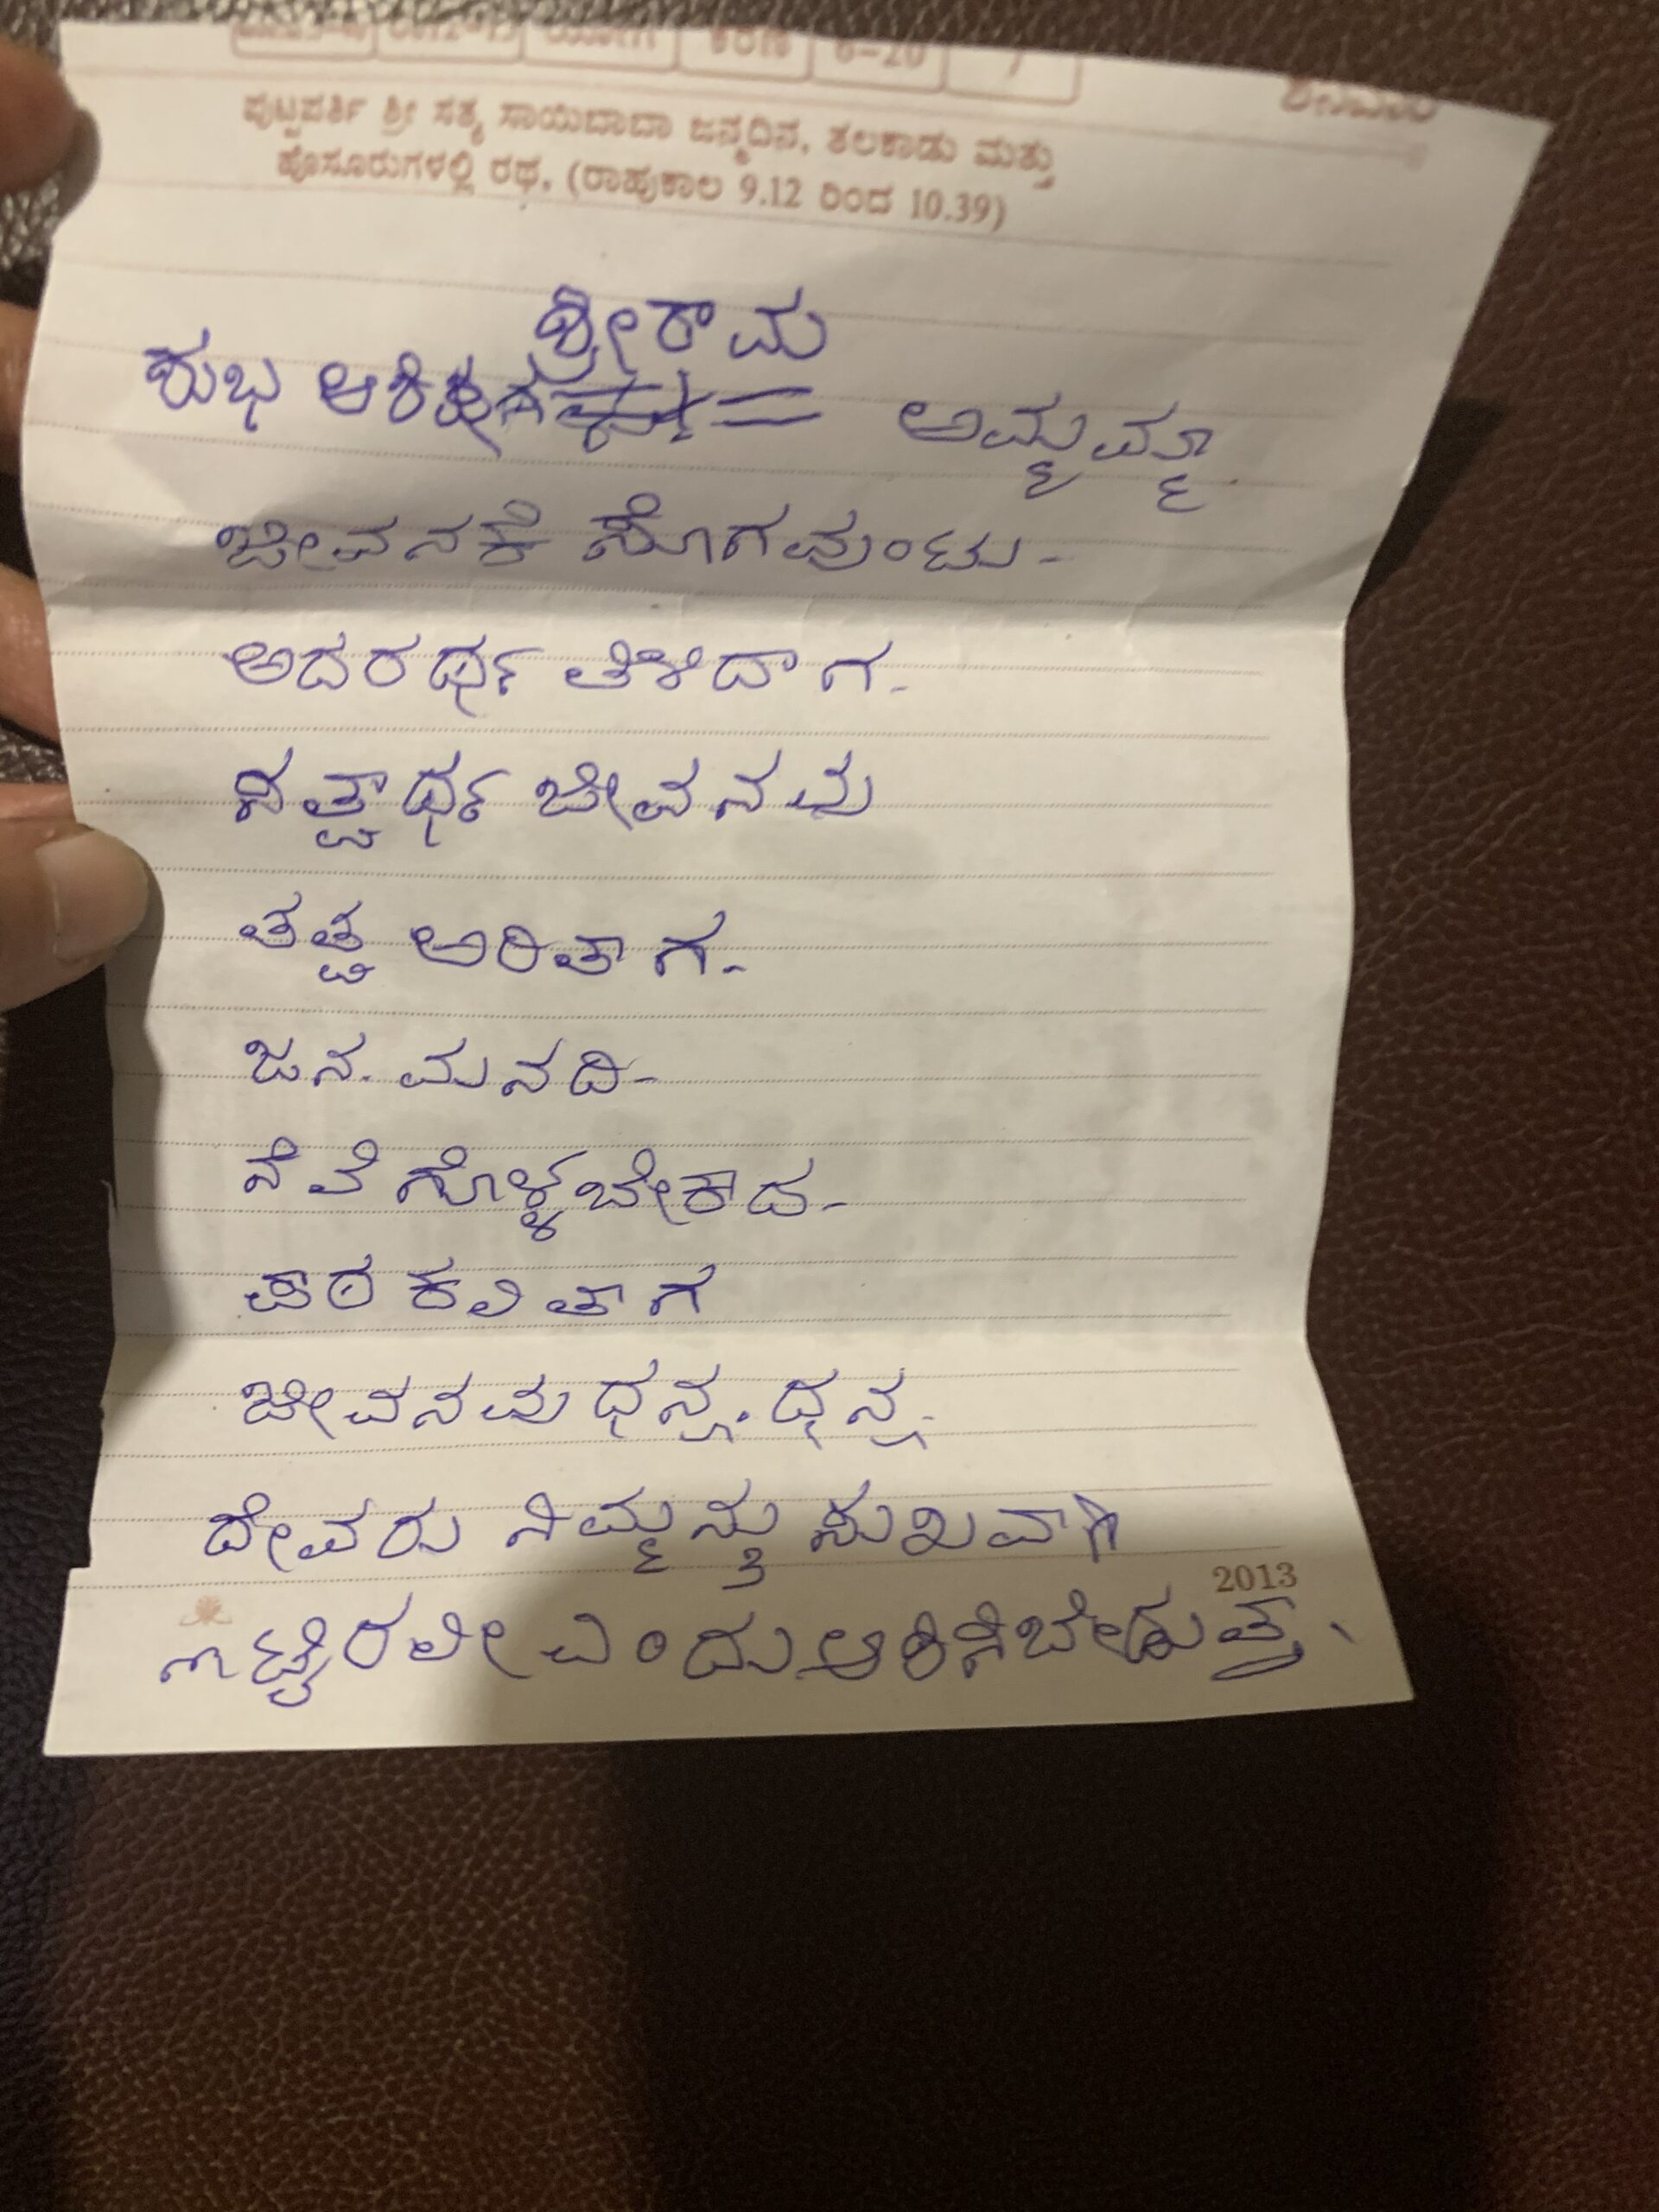 ಕರಣ 6-20 7 ಶನಿವಾರ
ಪುಟ್ಟಪರ್ತಿ ಶ್ರೀ ಸತ್ಯ ಸಾಯಿಬಾಬಾ ಜನ್ಮದಿನ, ತಲಕಾಡು ಮತ್ತು
ಹೊಸೂರುಗಳಲ್ಲಿ ರಥ, (ರಾಹುಕಾಲ 9.12 ರಿಂದ 10.39)
ಶ್ರೀರಾಮ
ಶುಭ ಅಮ್ಮಮ್ಮಾ
ಜೀವನಕೆ ಸೊಗವುಂಟು-
ಅದರರ್ಥ ತಿಳಿದಾಗ.
ಜೀವನವು
ತತ್ವ ಅರಿತಾಗ.
ಜನ. ಮನದಿ-
ಸೆವೆಗೊಳ್ಳಬೇಕಾದ-
ಪಾಠ ಕಲಿತಾಗ
ಜೀವನವು ಧನ್ಯ. ಧನ್ಯ.
ದೇವರು ನಿಮ್ಮನ್ನು ಸುಖವಾಗಿ
2013
ಇಟ್ಟಿರಲೀ ಎಂದು